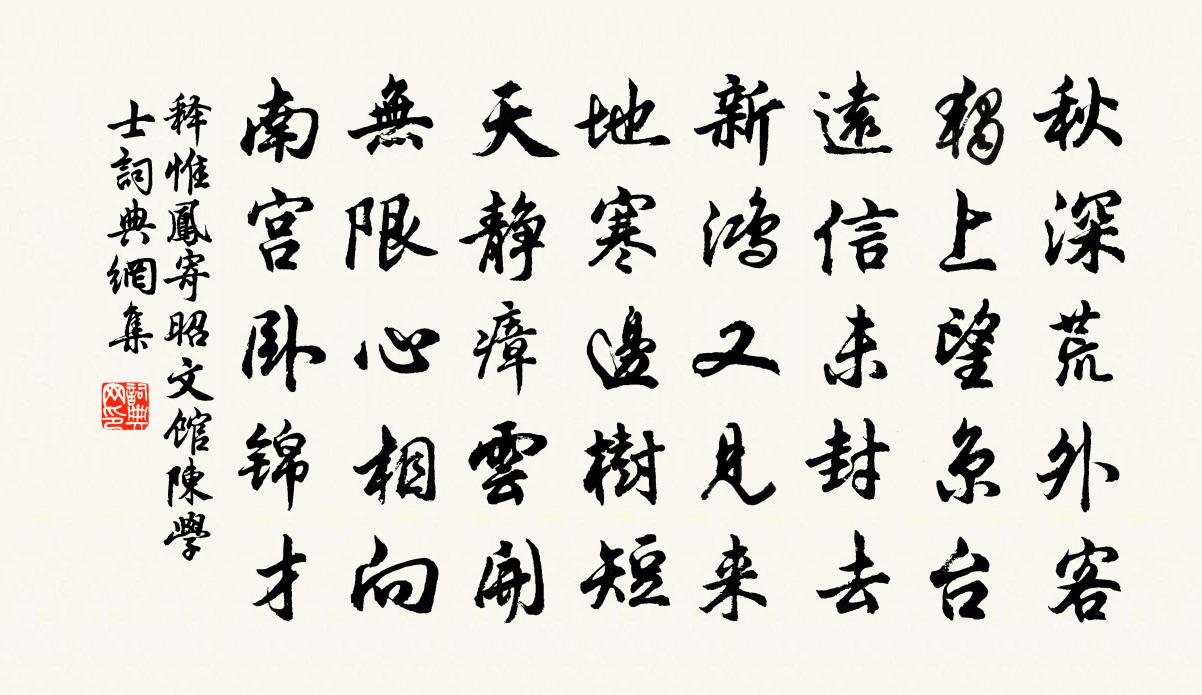 秋深荒外客
獨上望京台
遠信未封去
新鴻又見来
地寒邊樹短
天静瘴雲開
無限心相向
南宫卧锦才
释惟鳳寄昭文馆陳學
士詞典網集
詞典網印